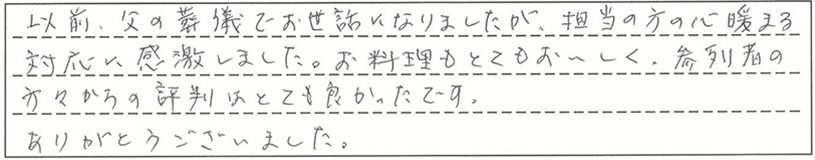 以前、父の葬儀でお世話になりましたが、担当の方の心暖まる
対応に感激しました。お料理もとてもおいしく、参列者の
方々からの評判はとても良かったです。
ありがとうございました。